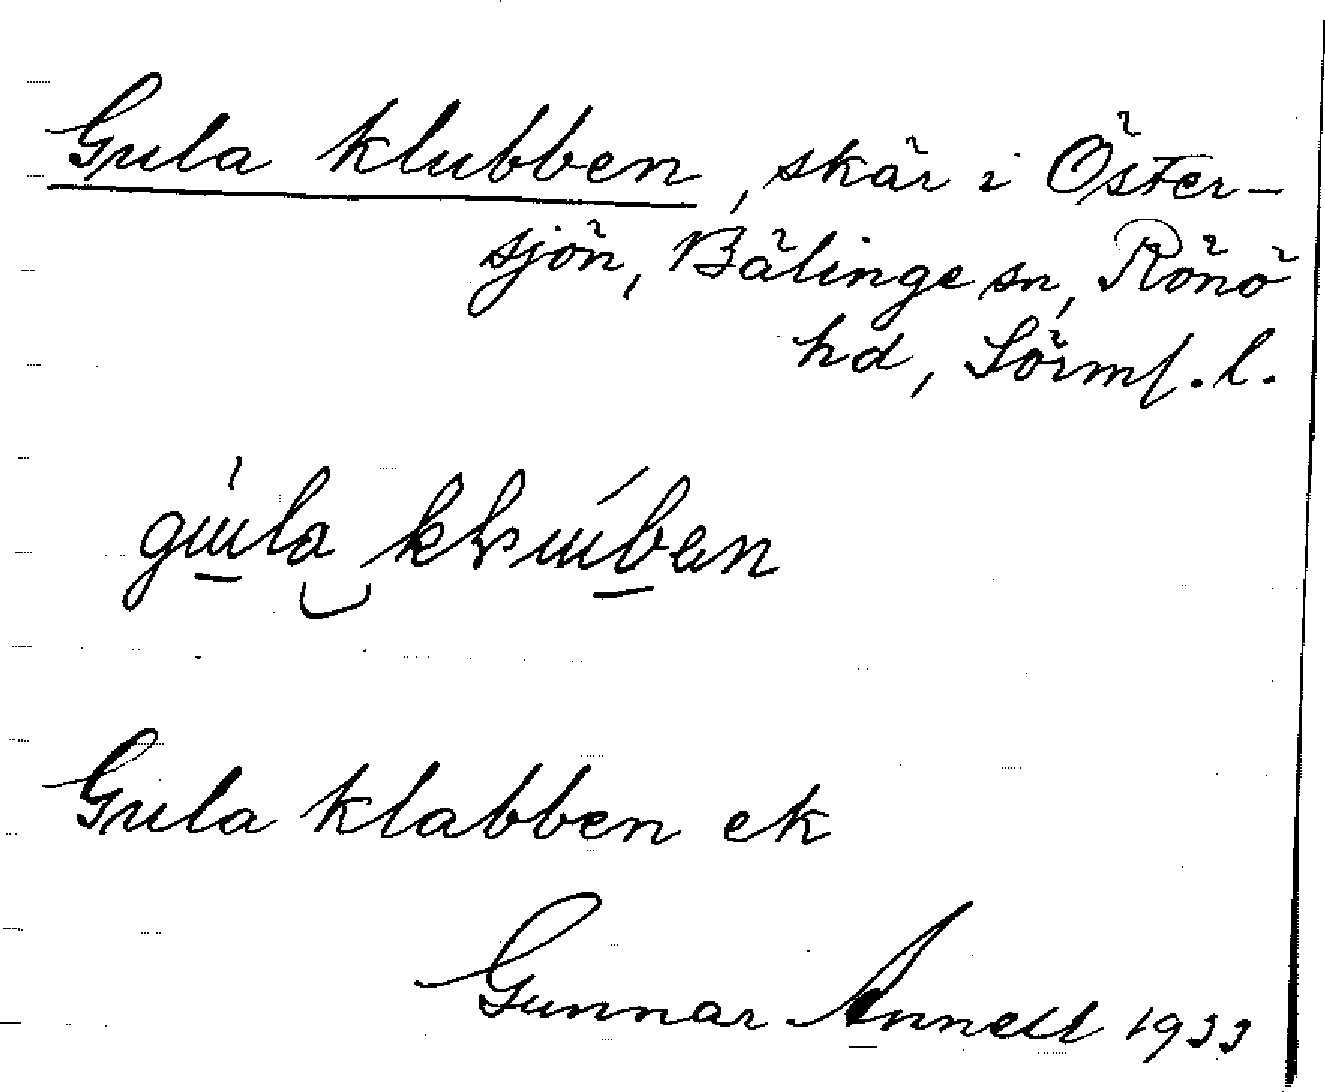 Gula klubben, skär i Öster-
sjön, Bälinge sn, Rönö
hd, Sörml. l.
Gula klabben ek
Gunnar Annell 1933